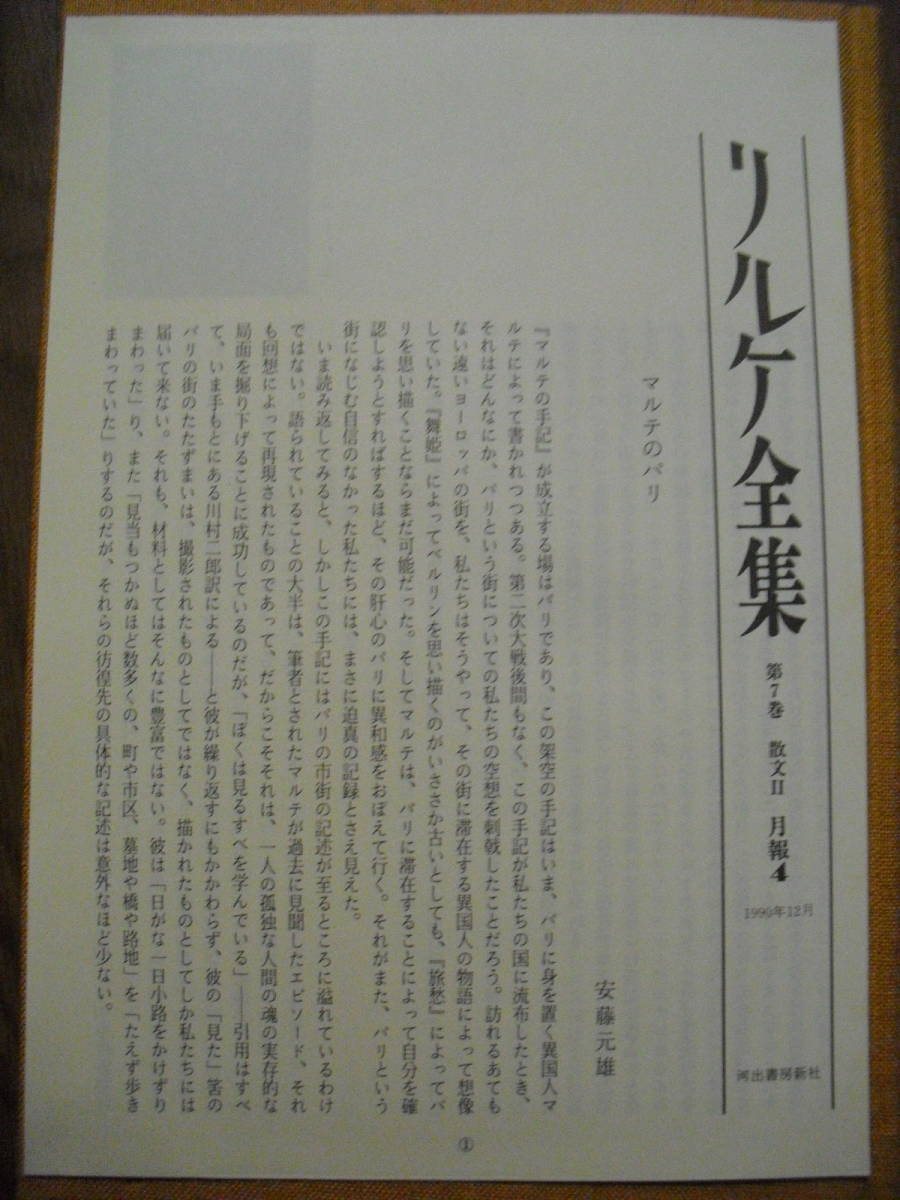 リルケ全集
第7巻 散文II 月報4
1990年12月
河出書房新社
マルテのパリ
安藤元雄
『マルテの手記』が成立する場はパリであり、この架空の手記はいま、パリに身を置く異国人マ
ルテによって書かれつつある。第二次大戦後間もなく、この手記が私たちの国に流布したとき、
それはどんなにか、パリという街についての私たちの空想を刺戟したことだろう。訪れるあても
ない遠いヨーロッパの街を、私たちはそうやって、その街に滞在する異国人の物語によって想像
していた。『舞姫』によってベルリンを思い描くのがいささか古いとしても、『旅愁』によってパ
リを思い描くことならまだ可能だった。そしてマルテは、パリに滞在することによって自分を確
認しようとすればするほど、その肝心のパリに異和感をおぼえて行く。それがまた、パリという
街になじむ自信のなかった私たちには、まさに迫真の記録とさえ見えた。
いま読み返してみると、しかしこの手記にはパリの市街の記述が至るところに溢れているわけ
ではない。語られていることの大半は、筆者とされたマルテが過去に見聞したエピソード、それ
も回想によって再現されたものであって、だからこそそれは、一人の孤独な人間の魂の実存的な
局面を掘り下げることに成功しているのだが、「ぼくは見るすべを学んでいる」――引用はすべ
て、いま手もとにある川村二郎訳による――と彼が繰り返すにもかかわらず、彼の「見た」筈の
パリの街のたたずまいは、撮影されたものとしてではなく、描かれたものとしてしか私たちには
届いて来ない。それも、材料としてはそんなに豊富ではない。彼は「日がな一日小路をかけずり
まわった」り、また「見当もつかぬほど数多くの、町や市区、墓地や橋や路地」を「たえず歩き
まわっていた」りするのだが、それらの彷徨先の具体的な記述は意外なほど少ない。
①